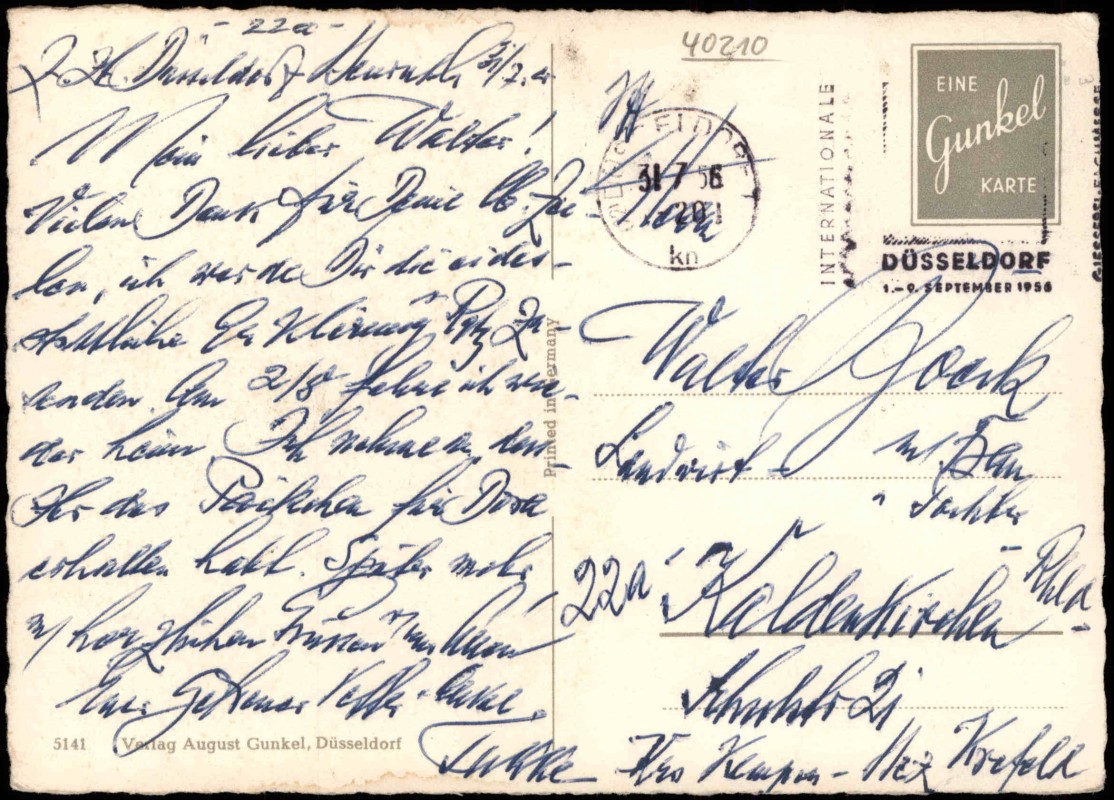 - 22a -
Z. Zt. Düsseldorf 31/7.
Mein lieber Walter!
Vielen Dank für Deine lb. Zei-
len, ich werde Dir die eides-
stattliche Erklärung zu-
senden. Am 2/8 fahre ich wie-
der heim. Ich nehme an, dass
Ihr das Päckchen für Dora
erhalten habt. Später mehr
m/ herzlichen Grüssen
Euer getreuer Vetter + Onkel
5141 Verlag August Gunkel, Düsseldorf
Printed in Germany
40210
DÜSSELDORF
31.7.56
-20
kn
INTERNATIONALE
DÜSSELDORF
1.-9. SEPTEMBER 1956
EINE
Gunkel
KARTE
Herrn
Walter
Landwirt m/ Frau
" Tochter
22a Kaldenkirchen Rhld
21
Krs Kempen - Krefeld